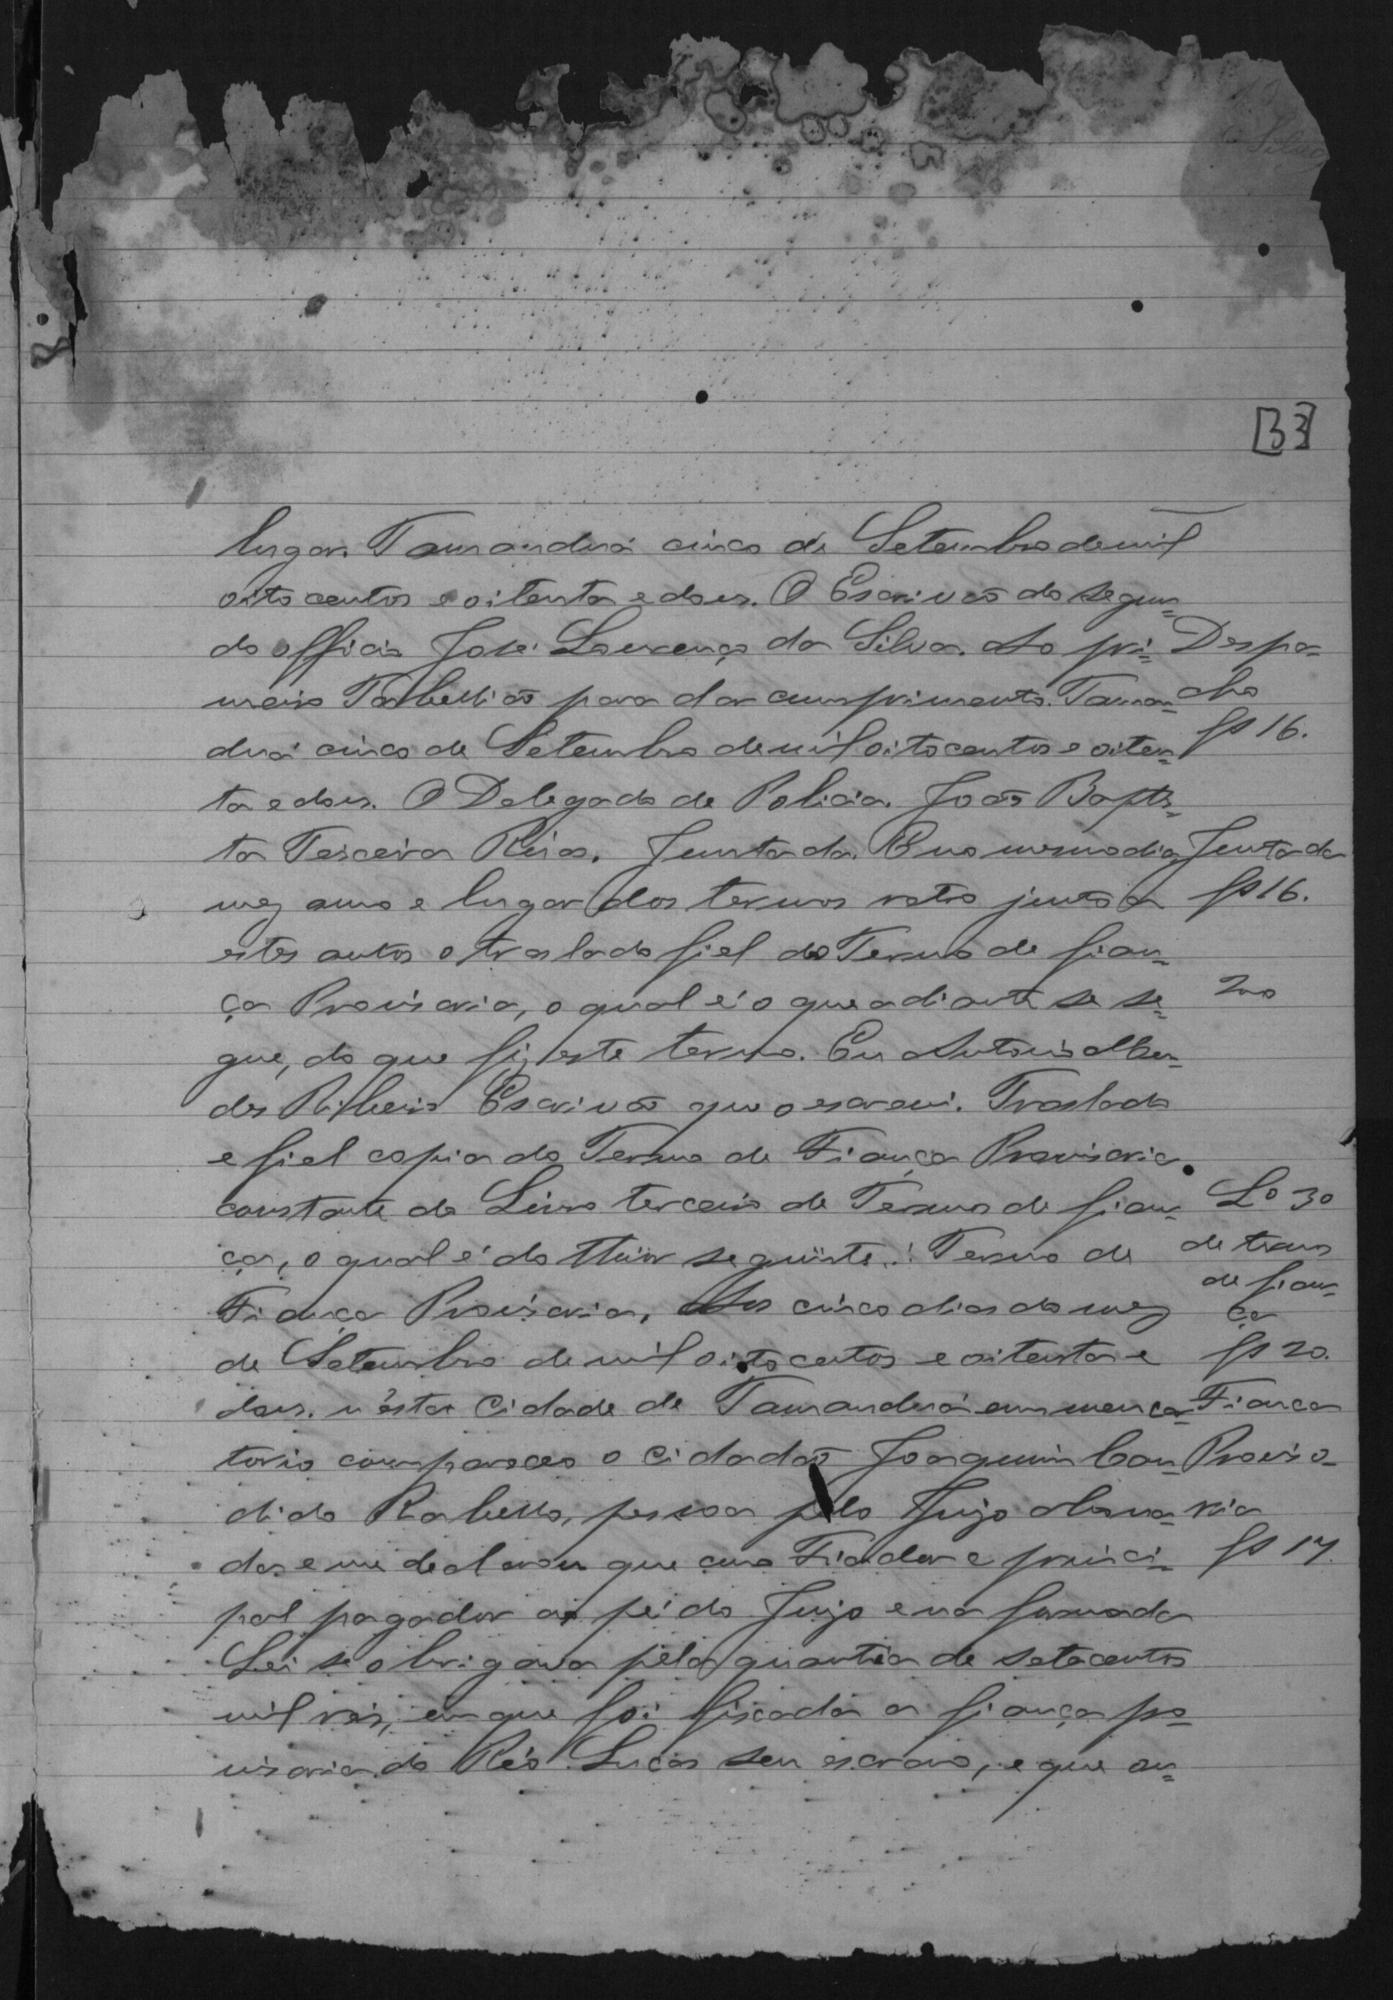 Silva
[33]
lugar. Tamanduá cinco de Setembro de mil
oito centos e oitenta e dous. O Escrivão do segun=
do officio José Lourenço da Silva. Ao pri=
meiro Tabellião para dar cumprimento. Taman=
duá cinco de Setembro de mil oito centos e oiten=
ta e dous. O Delegado de Policia. João Baptis=
ta Terceira Rios. Juntada. E no mesmo dia
mez anno e lugar dos termos retro junto a
estes autos o traslado fiel do Termo de fian=
ça Provisoria, o qual é o que adiante se se=
gue, do que fiz este termo. Eu Antonio Men=
des Ribeiro Escrivão que o escrevi. Traslado
e fiel copia do Termo de Fiança Provisoria
constante do Livro terceiro de Termo de fian=
ça, o qual é do theor seguinte: Termo de
Fiança Provisoria, Aos cinco dias do mez
de Setembro de mil oito centos e oitenta e
dous. n'esta Cidade de Tamanduá em meu car=
torio compareceo o cidadão Joaquim Can=
dido Rabello, pessoa pelo Juizo abona=
da e me declarou que como Fiador e princi=
pal pagador ao pé do Juizo e na forma da
Lei se obrigava pela quantia de setecentos
mil reis, em que foi fixada a fiança pro=
visoria do Réo Lucas seu escravo, e que au=
Despa=
cho
fls 16.
Juntada
fls 16.
Lº 3º
de termo
de fian=
ça
fls 20.
Fiança
Proviso=
ria
fls 17.